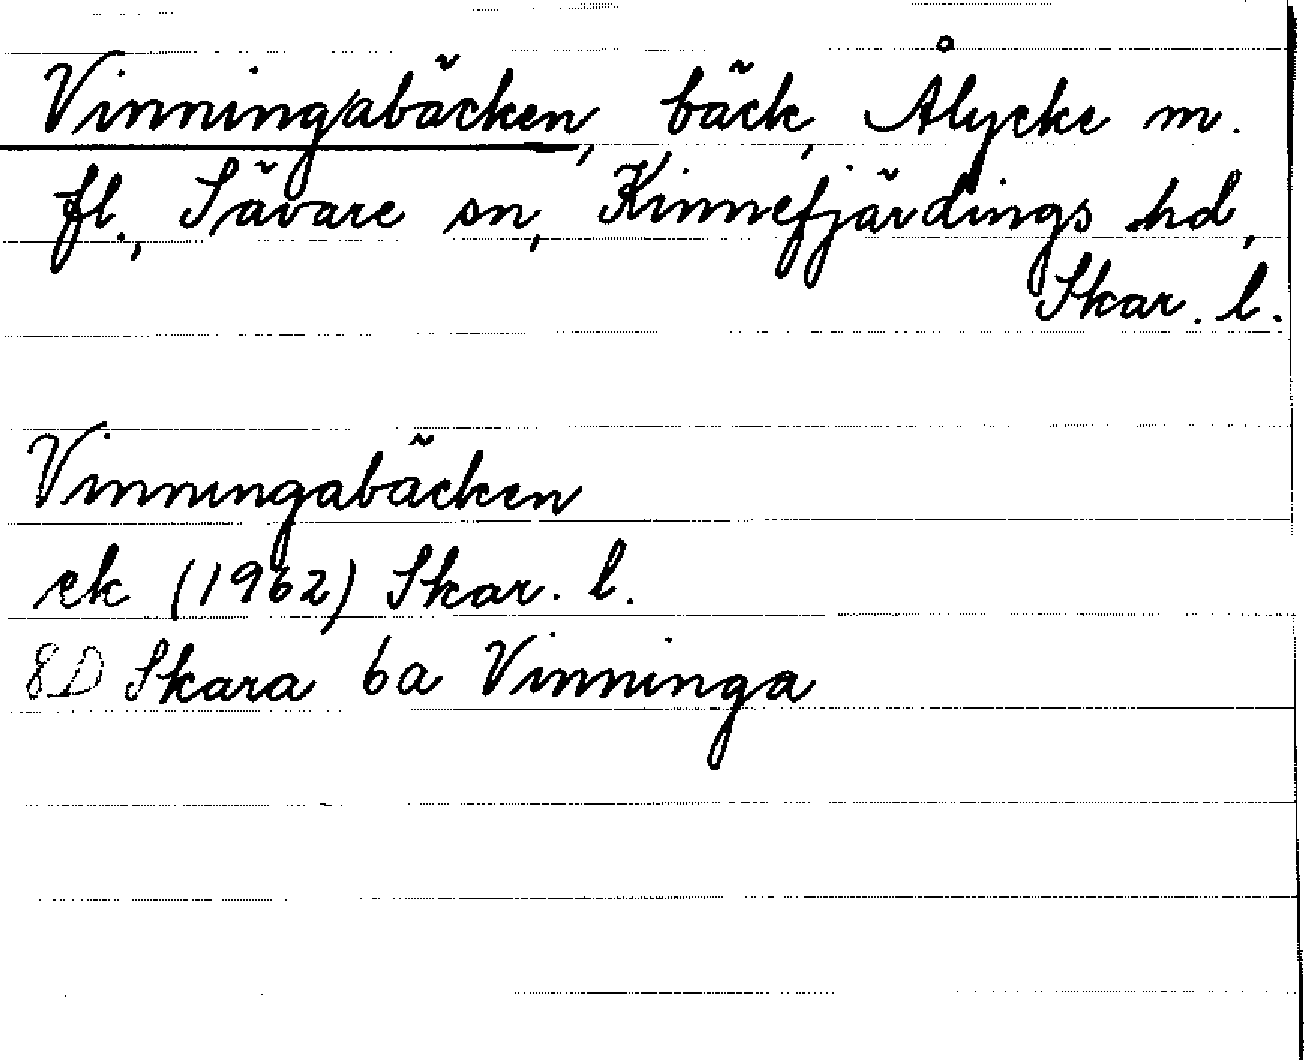 Vinning/abäcken, bäck, Ålycke m.
fl., Sävare sn, Kinnefjärdings hd,
Skar. l.
Vinningabäcken
ek (1962) Skar. l.
8D Skara 6a Vinninga